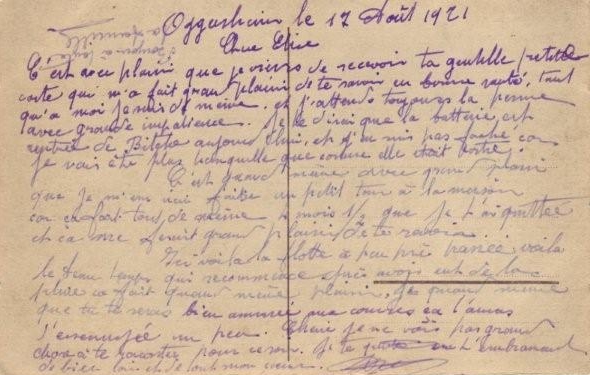 Oggersheim le 17 Août 1921
Chère Elise
C'est avec plaisir que je viens de recevoir ta gentille petite
carte qui m'a fait grand plaisir de te savoir en bonne santé, tant
qu'a moi je suis de même, et j'attends toujours la
avec grande impatience. Je te dirai que la batterie est
rentrée de Bitche aujourd'hui, et j'en suis pas faché car
je vais être plus tranquille que comme elle était
C'est quand même avec grand plaisir
que je m'en irai faire un petit tour à la maison
car ça fait tout de même mois 1/2 que je t'ai quittée
et ça me ferait grand plaisir de te revoir
voilà la flotte a peu près passée voila
le beau temps qui recommence après avoir eut de la
pluie ça fait quand même plaisir, quand même
que tu te serais bien amusée
ennuyée un peu. Chère je ne vois pas grand
chose à te raconter pour ce soir. Je te en t'embrassant
de bien loin et de tout mon cœur.